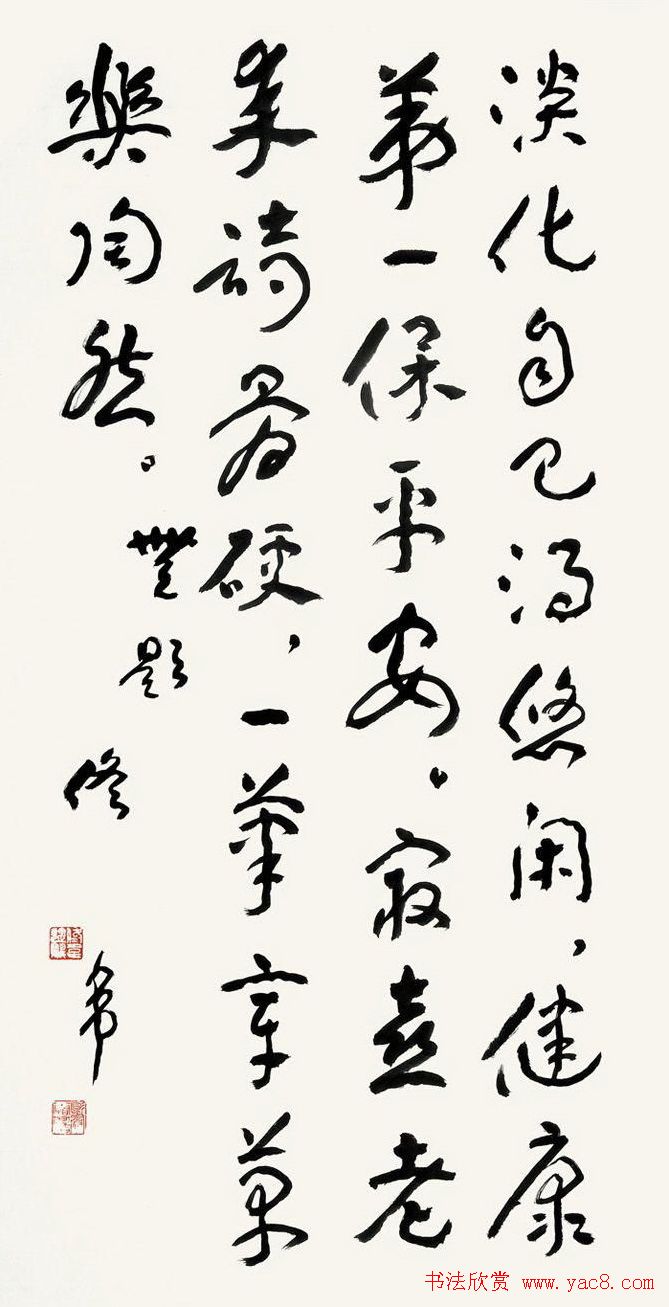 淡化自己得悠闲，健康
第一保平安。最喜老
来诗骨硬，一笔章草
樂陶然。
無题 佟
韦
书法欣赏 www.yac8.com